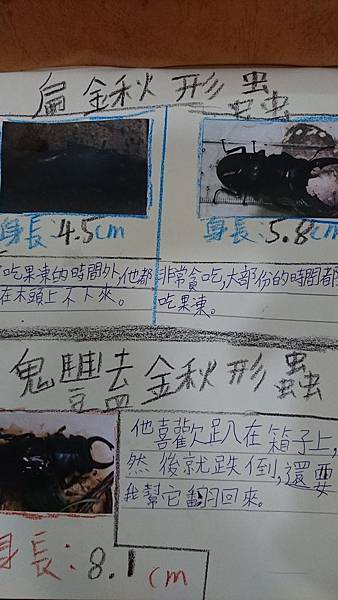 扁鍬形蟲
身長:4.5cm
身長:5.8cm
吃果東的時間外,他都
在木頭上不下來。
非常貪吃,大部份的時間都
吃果東。
鬼豔鍬形蟲
他喜歡趴在箱子上,
然後就跌倒,還要
我幫它翻回來。
身長:8.1cm